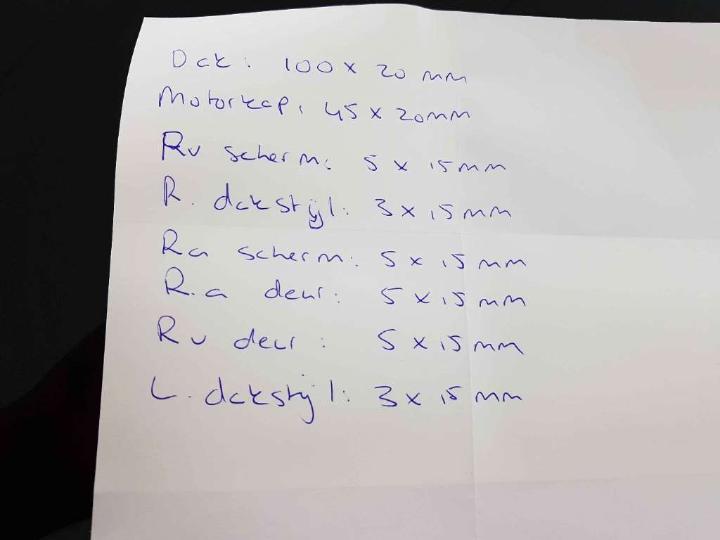 Dak: 100 x 20 mm
Motorkap: 45 x 20 mm
Rv scherm: 5 x 15 mm
R. dakstijl: 3 x 15 mm
Ra scherm: 5 x 15 mm
R.a deur: 5 x 15 mm
Rv deur: 5 x 15 mm
L. dakstijl: 3 x 15 mm